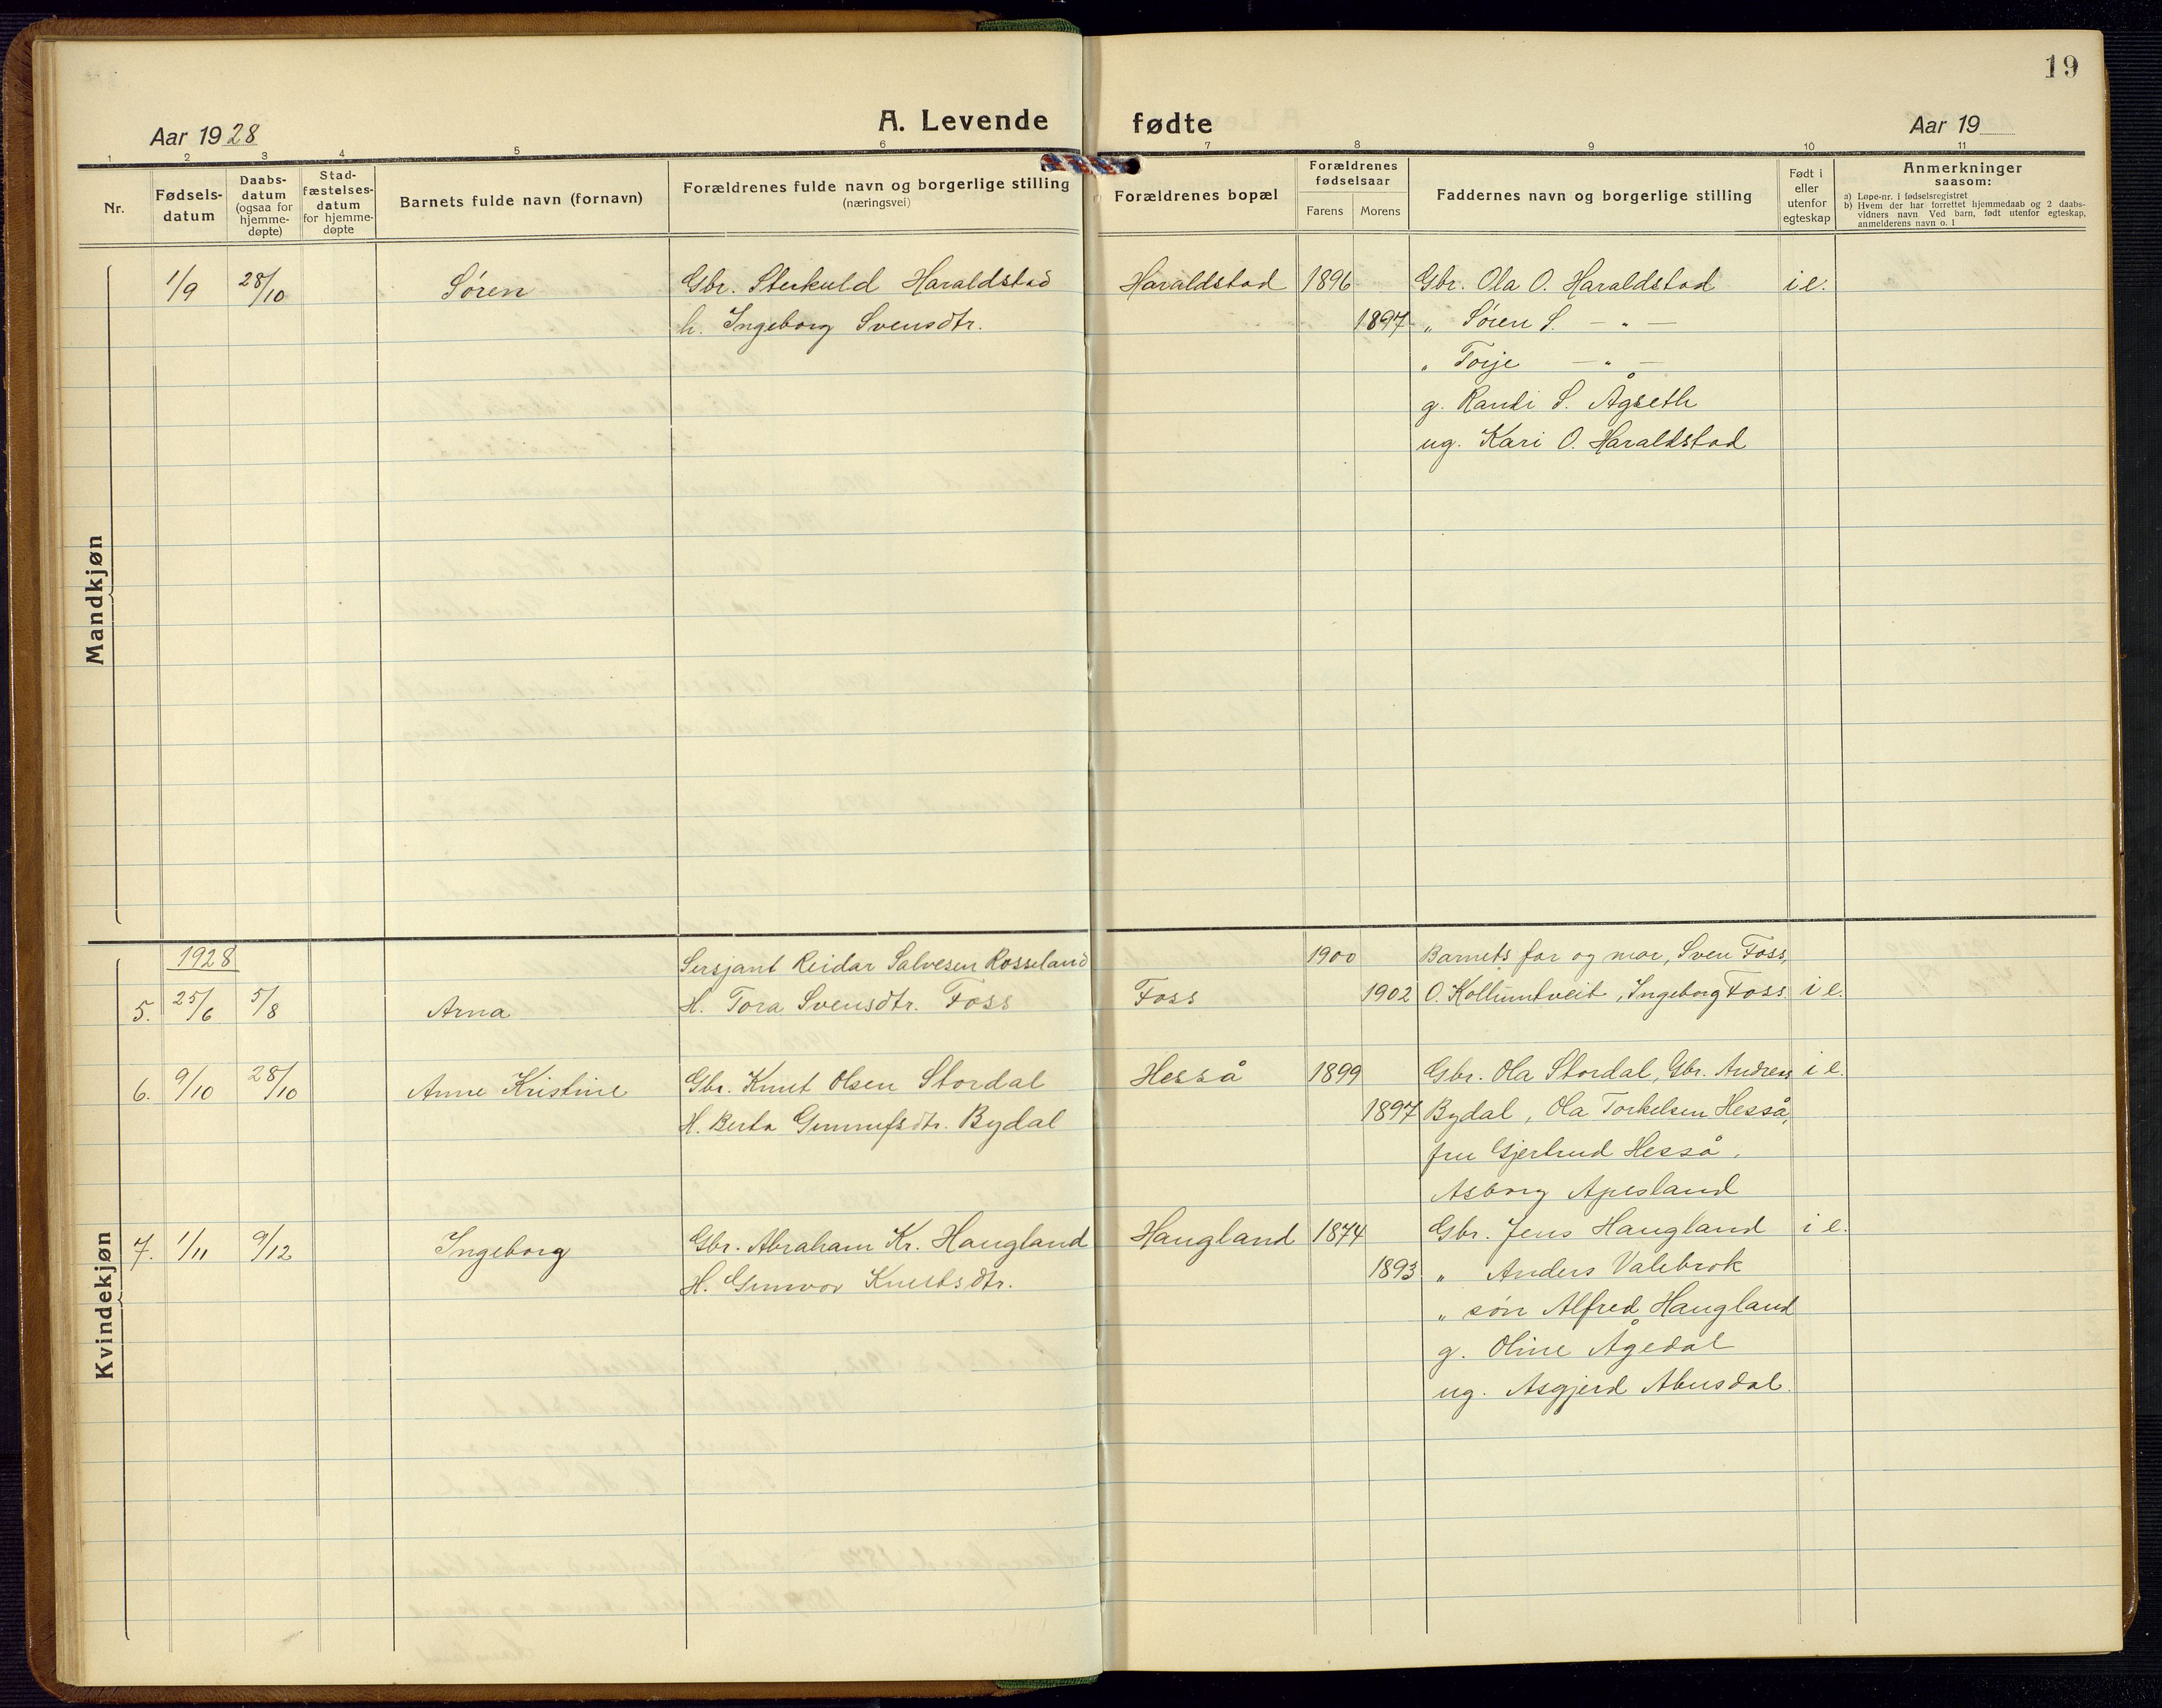 19
Aar 1928
A. Levende fødte
Aar 19
1 2 3 4 5 6 7 8 9 10 11
Nr.
Fødsels-
datum
Daabs-
datum
(ogsaa for
hjemme-
døpte)
Stad-
fæstelses-
datum
for hjemme-
døpte
Barnets fulde navn (fornavn)
Forældrenes fulde navn og borgerlige stilling
(næringsvei)
Forældrenes bopæl
Forældrenes
fødselsaar
Farens Morens
Faddernes navn og borgerlige stilling
Født i
eller
utenfor
egteskap
Anmerkninger
saasom:
a) Løpe-nr. i fødselsregistret
b) Hvem der har forrettet hjemmedaab og 2 daabs-
vidners navn Ved barn, født utenfor egteskap,
anmelderens navn o. l
Mandkjøn
1/9 28/10 Søren Gbr. Sterkuld Haraldstad Haraldstad 1896 Gbr. Ola O. Haraldstad i e.
h. Ingeborg Svensdtr. 1897 „ Søren S. — „ —
„ Torje — „ —
g. Randi S. Ågseth
ug. Kari O. Haraldstad
Kvindekjøn
1928 Sersjant Reidar Salvesen Rosseland 1900 Barnets far og mor, Sven Foss,
5. 25/6 5/8 Arna H. Tora Svensdtr. Foss Foss 1902 O. Kollumtveit, Ingeborg Foss i e.
6. 9/10 28/10 Anne Kristine Gbr. Knut Olsen Stordal Hesså 1899 Gbr. Ola Stordal, Gbr. Andreas i e.
H. Berta Gunnufsdtr. Bydal 1897 Bydal, Ola Torkelsen Hesså,
fru Gjertrud Hesså,
Asborg Apesland
7. 1/11 9/12 Ingeborg Gbr. Abraham Kr. Haugland Haugland 1874 Gbr. Jens Haugland i e.
H. Gunvor Knutsdtr. 1893 „ Anders Valebrok
„ søn Alfred Haugland
g. Oline Ågedal
ug. Asgjerd Abusdal.